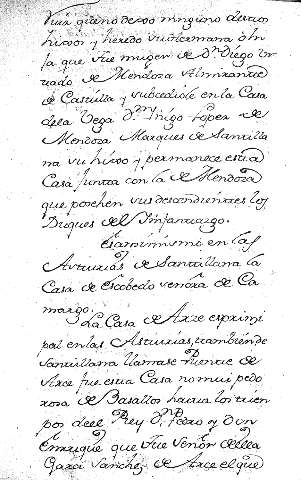 Vuix que no dexo ninguno destos
hixos y heredo su hermana oh
Ja que fue muger de Dn Diego ur
tado de Mendoza Almirante
de Castilla y subcediole en la Casa
dela Vega Dn Iñigo Lopez de
Mendoza Marques de Santilla
na su hixo y permanece esta
Casa Junta con la de Mendoza
que poschen sus descendientes los
Duques del Infantazgo.
Es asimismo en las
Asturias de Santillana la
Casa de Escobedo señora de Ca
margo.
La Casa de Arze es primi
pal en las Asturias, tambien de
Santillana llamase Puente de
Arze fue esta Casa no mui pode
rosa de Basallos hasta los tiem
pos de el Rey Dn Pedro y Don
Enrique que fue Señor della
Garci Sanchez de Arze el que